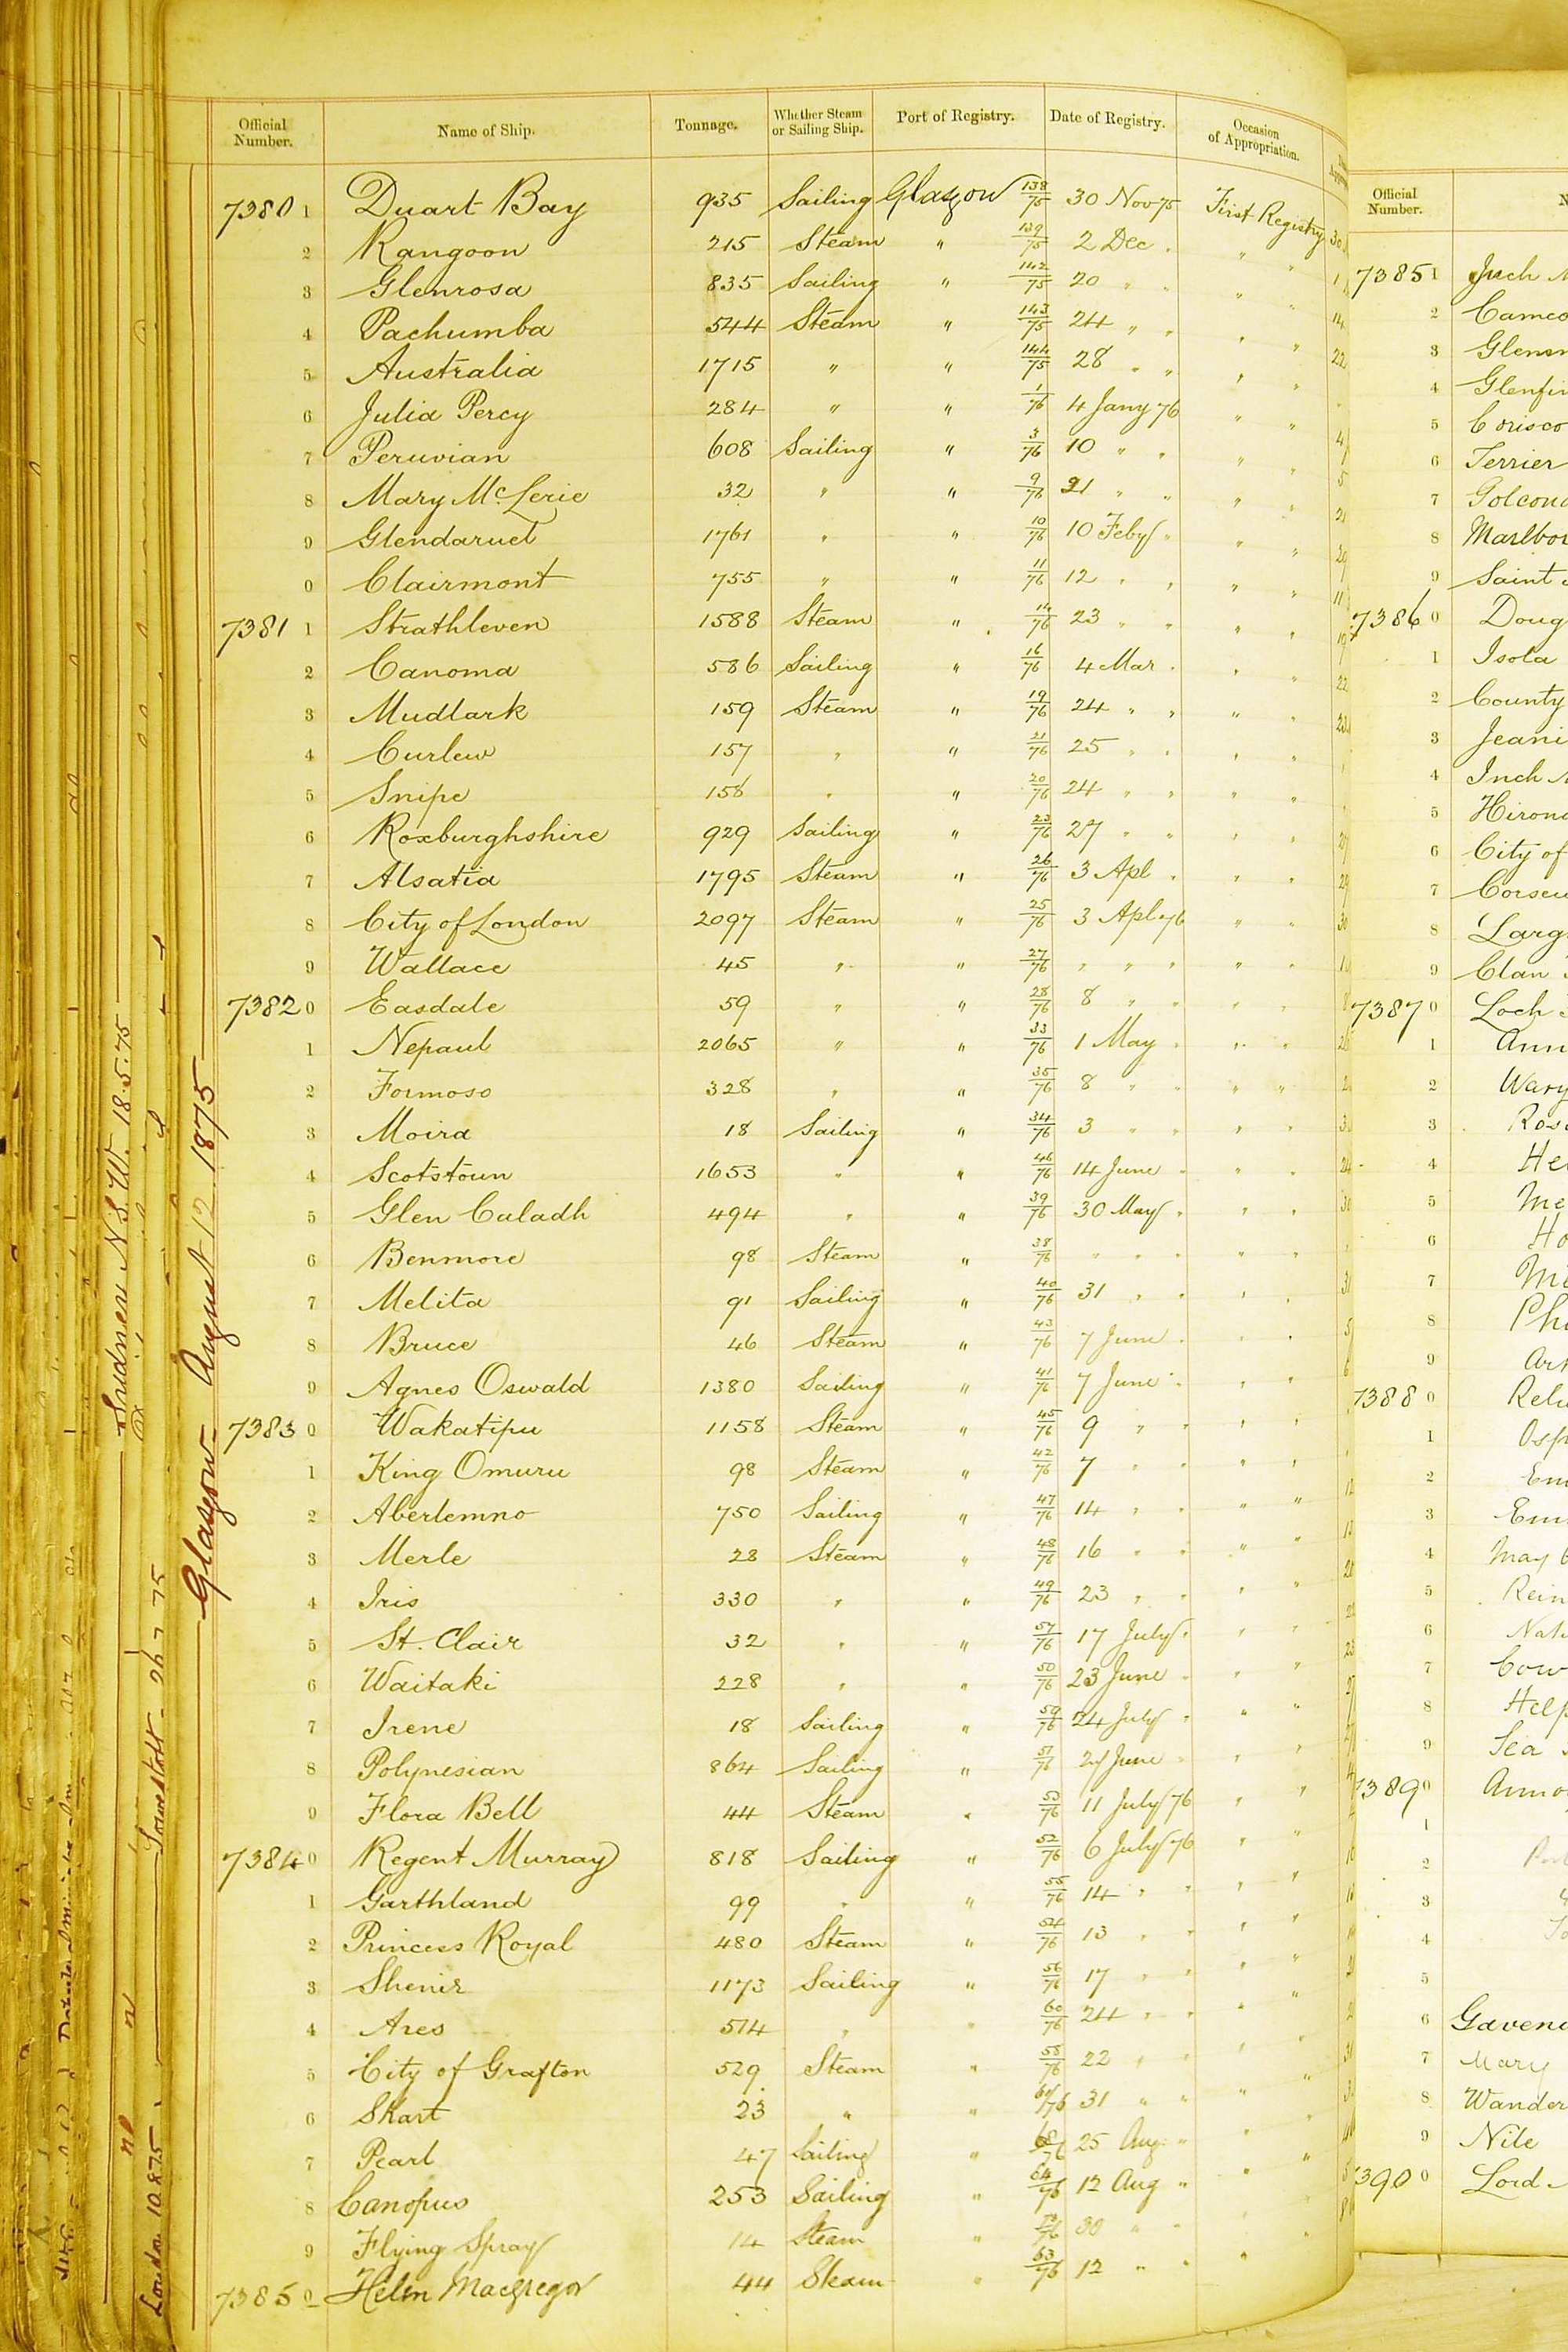 Official Number. Name of Ship. Tonnage. Whether Steam or Sailing Ship. Port of Registry. Date of Registry. Occasion of Appropriation.
7380 1 Duart Bay 935 Sailing Glasgow 138/75 30 Nov 75 First Registry
2 Rangoon 215 Steam " 139/75 2 Dec " " "
3 Glenrosa 835 Sailing " 142/75 20 " " " "
4 Pachumba 544 Steam " 143/75 24 " " " "
5 Australia 1715 " " 144/75 28 " " " "
6 Julia Percy 284 " " 1/76 4 Jany 76 " "
7 Peruvian 608 Sailing " 3/76 10 " " " "
8 Mary McLerie 32 " " 9/76 21 " " " "
9 Glendaruel 1761 " " 10/76 10 Feby " " "
0 Clairmont 755 " " 11/76 12 " " " "
7381 1 Strathleven 1588 Steam " 14/76 23 " " " "
2 Canoma 586 Sailing " 16/76 4 Mar " " "
3 Mudlark 159 Steam " 19/76 24 " " " "
4 Curlew 157 " " 21/76 25 " " " "
5 Snipe 158 " " 20/76 24 " " " "
6 Roxburghshire 929 Sailing " 23/76 27 " " " "
7 Alsatia 1795 Steam " 26/76 3 Apl " " "
8 City of London 2097 Steam " 25/76 3 Apl 76 " "
9 Wallace 45 " " 27/76 " " " " "
7382 0 Easdale 59 " " 28/76 8 " " " "
1 Nepaul 2065 " " 33/76 1 May " " "
2 Formoso 328 " " 35/76 8 " " " "
3 Moira 18 Sailing " 34/76 3 " " " "
4 Scotstoun 1653 " " 46/76 14 June " " "
5 Glen Caladh 494 " " 39/76 30 May " " "
6 Benmore 98 Steam " 38/76 " " " " "
7 Melita 91 Sailing " 40/76 31 " " " "
8 Bruce 46 Steam " 43/76 7 June " " "
9 Agnes Oswald 1380 Sailing " 41/76 7 June " " "
7383 0 Wakatipu 1158 Steam " 45/76 9 " " " "
1 King Omuru 98 Steam " 42/76 7 " " " "
2 Aberlemno 750 Sailing " 47/76 14 " " " "
3 Merle 28 Steam " 48/76 16 " " " "
4 Iris 330 " " 49/76 23 " " " "
5 St. Clair 32 " " 57/76 17 July " " "
6 Waitaki 228 " " 50/76 23 June " " "
7 Irene 18 Sailing " 59/76 24 July " " "
8 Polynesian 864 Sailing " 51/76 June " " "
9 Flora Bell 44 Steam " 53/76 11 July 76 " "
7384 0 Regent Murray 818 Sailing " 52/76 6 July 76 " "
1 Garthland 99 " " 55/76 14 " " " "
2 Princess Royal 480 Steam " 54/76 13 " " " "
3 Shenir 1173 Sailing " 56/76 17 " " " "
4 Ares 514 " " 60/76 24 " " " "
5 City of Grafton 529 Steam " 58/76 22 " " " "
6 Skart 23 " " /76 31 " " " "
7 Pearl 47 Sailing " 68/76 25 Aug " " "
8 Canopus 253 Sailing " 64/76 12 Aug " "
9 Flying Spray 14 Steam " /76 30 " " " "
7385 0 Helen MacGregor 44 Steam " 63/76 12 " " "
Glasgow August 12. 1875
Sydney N.S.W. 18.5.75
Lowestoft 26 7 75
London 10 8 75
Official Number.
7385 1 Inch
2 Cameo
3 Glen
4 Glenfi
5 Corisco
6 Terrier
7 Golcond
8 Marlbor
9 Saint
7386 0 Doug
1 Isola
2 County
3 Jeani
4 Inch
5 Hirond
6 City of
7 Corse
8 Larg
9 Clan
7387 0 Loch
1 Ann
2 Wary
3 Ros
4 He
5 Me
6 Ho
7 Mi
8 Ph
9 Ar
7388 0 Relu
1 Osp
2 Em
3 Em
4 May
5 Rein
6 Nat
7 Cow
8 Help
9 Sea
7389 0 Anno
1
2
3
4
5
6 Gaven
7 Mary
8 Wander
9 Nile
7390 0 Lord